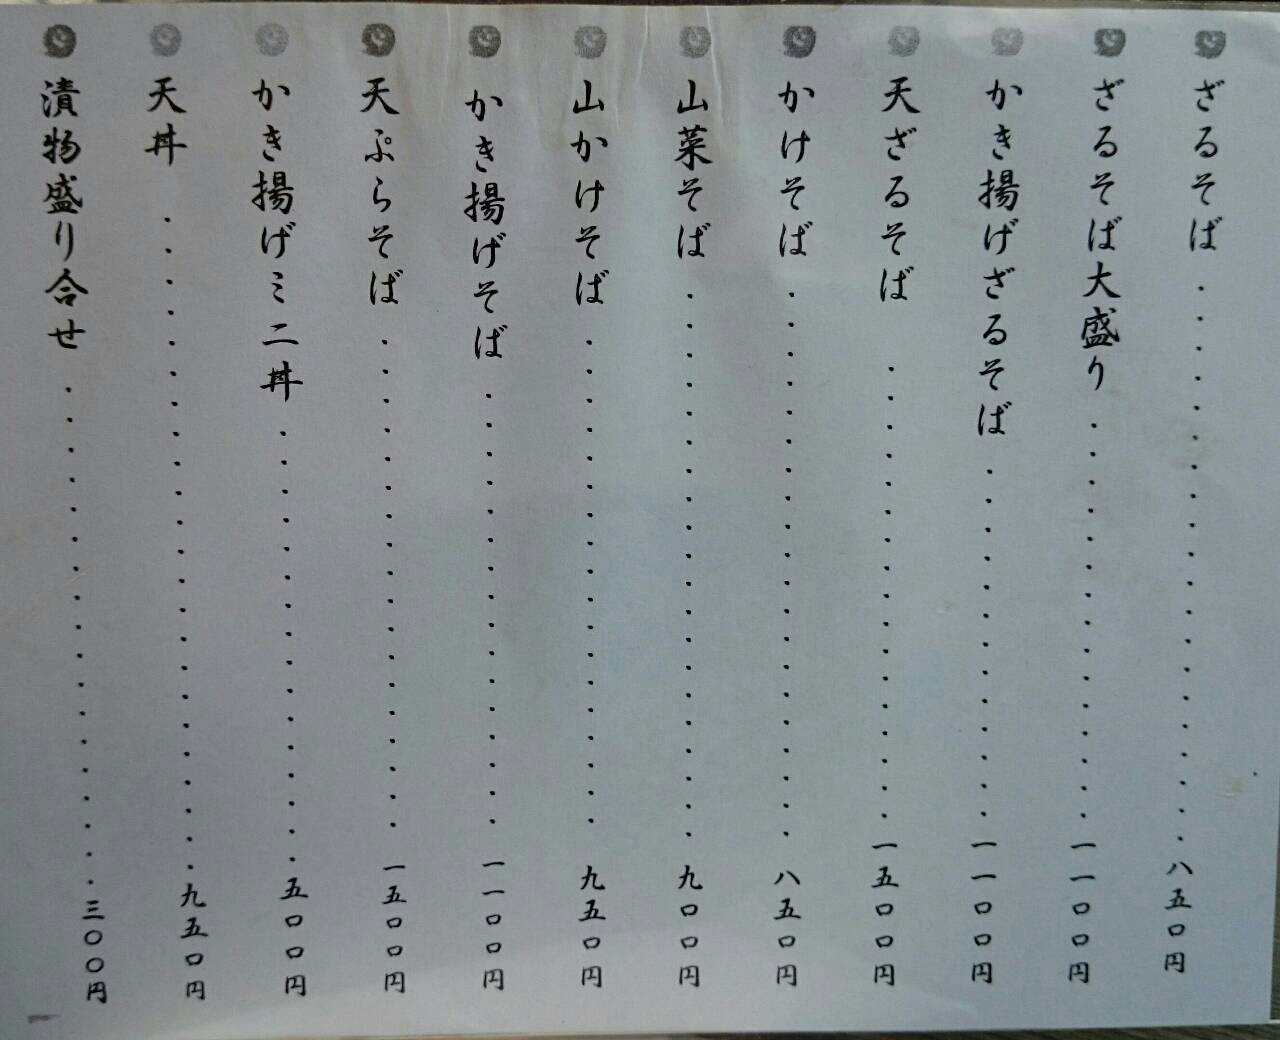 ざるそば・・・・・・・・・・・・・・・・・・・・八五〇円
ざるそば大盛り・・・・・・・・・・・・・・・一一〇〇円
かき揚げざるそば・・・・・・・・・・・・・一一〇〇円
天ざるそば・・・・・・・・・・・・・・・・・一五〇〇円
かけそば・・・・・・・・・・・・・・・・・・・・八五〇円
山菜そば・・・・・・・・・・・・・・・・・・・・九〇〇円
山かけそば・・・・・・・・・・・・・・・・・・九五〇円
かき揚げそば・・・・・・・・・・・・・・・・一一〇〇円
天ぷらそば・・・・・・・・・・・・・・・・・・一五〇〇円
かき揚げミニ丼・・・・・・・・・・・・・・・・五〇〇円
天丼・・・・・・・・・・・・・・・・・・・・・・・・九五〇円
漬物盛り合せ・・・・・・・・・・・・・・・・・・三〇〇円